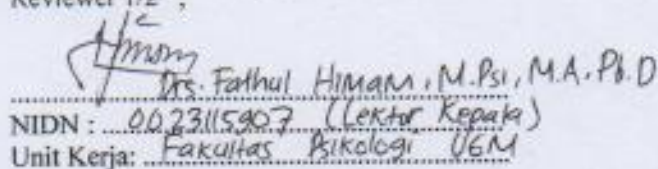 Reviewer 1/2
Drs. Fathul Himam, M.Psi, M.A. Ph.D
NIDN : 0023115907 (Lektor Kepala)
Unit Kerja: Fakultas Psikologi UGM